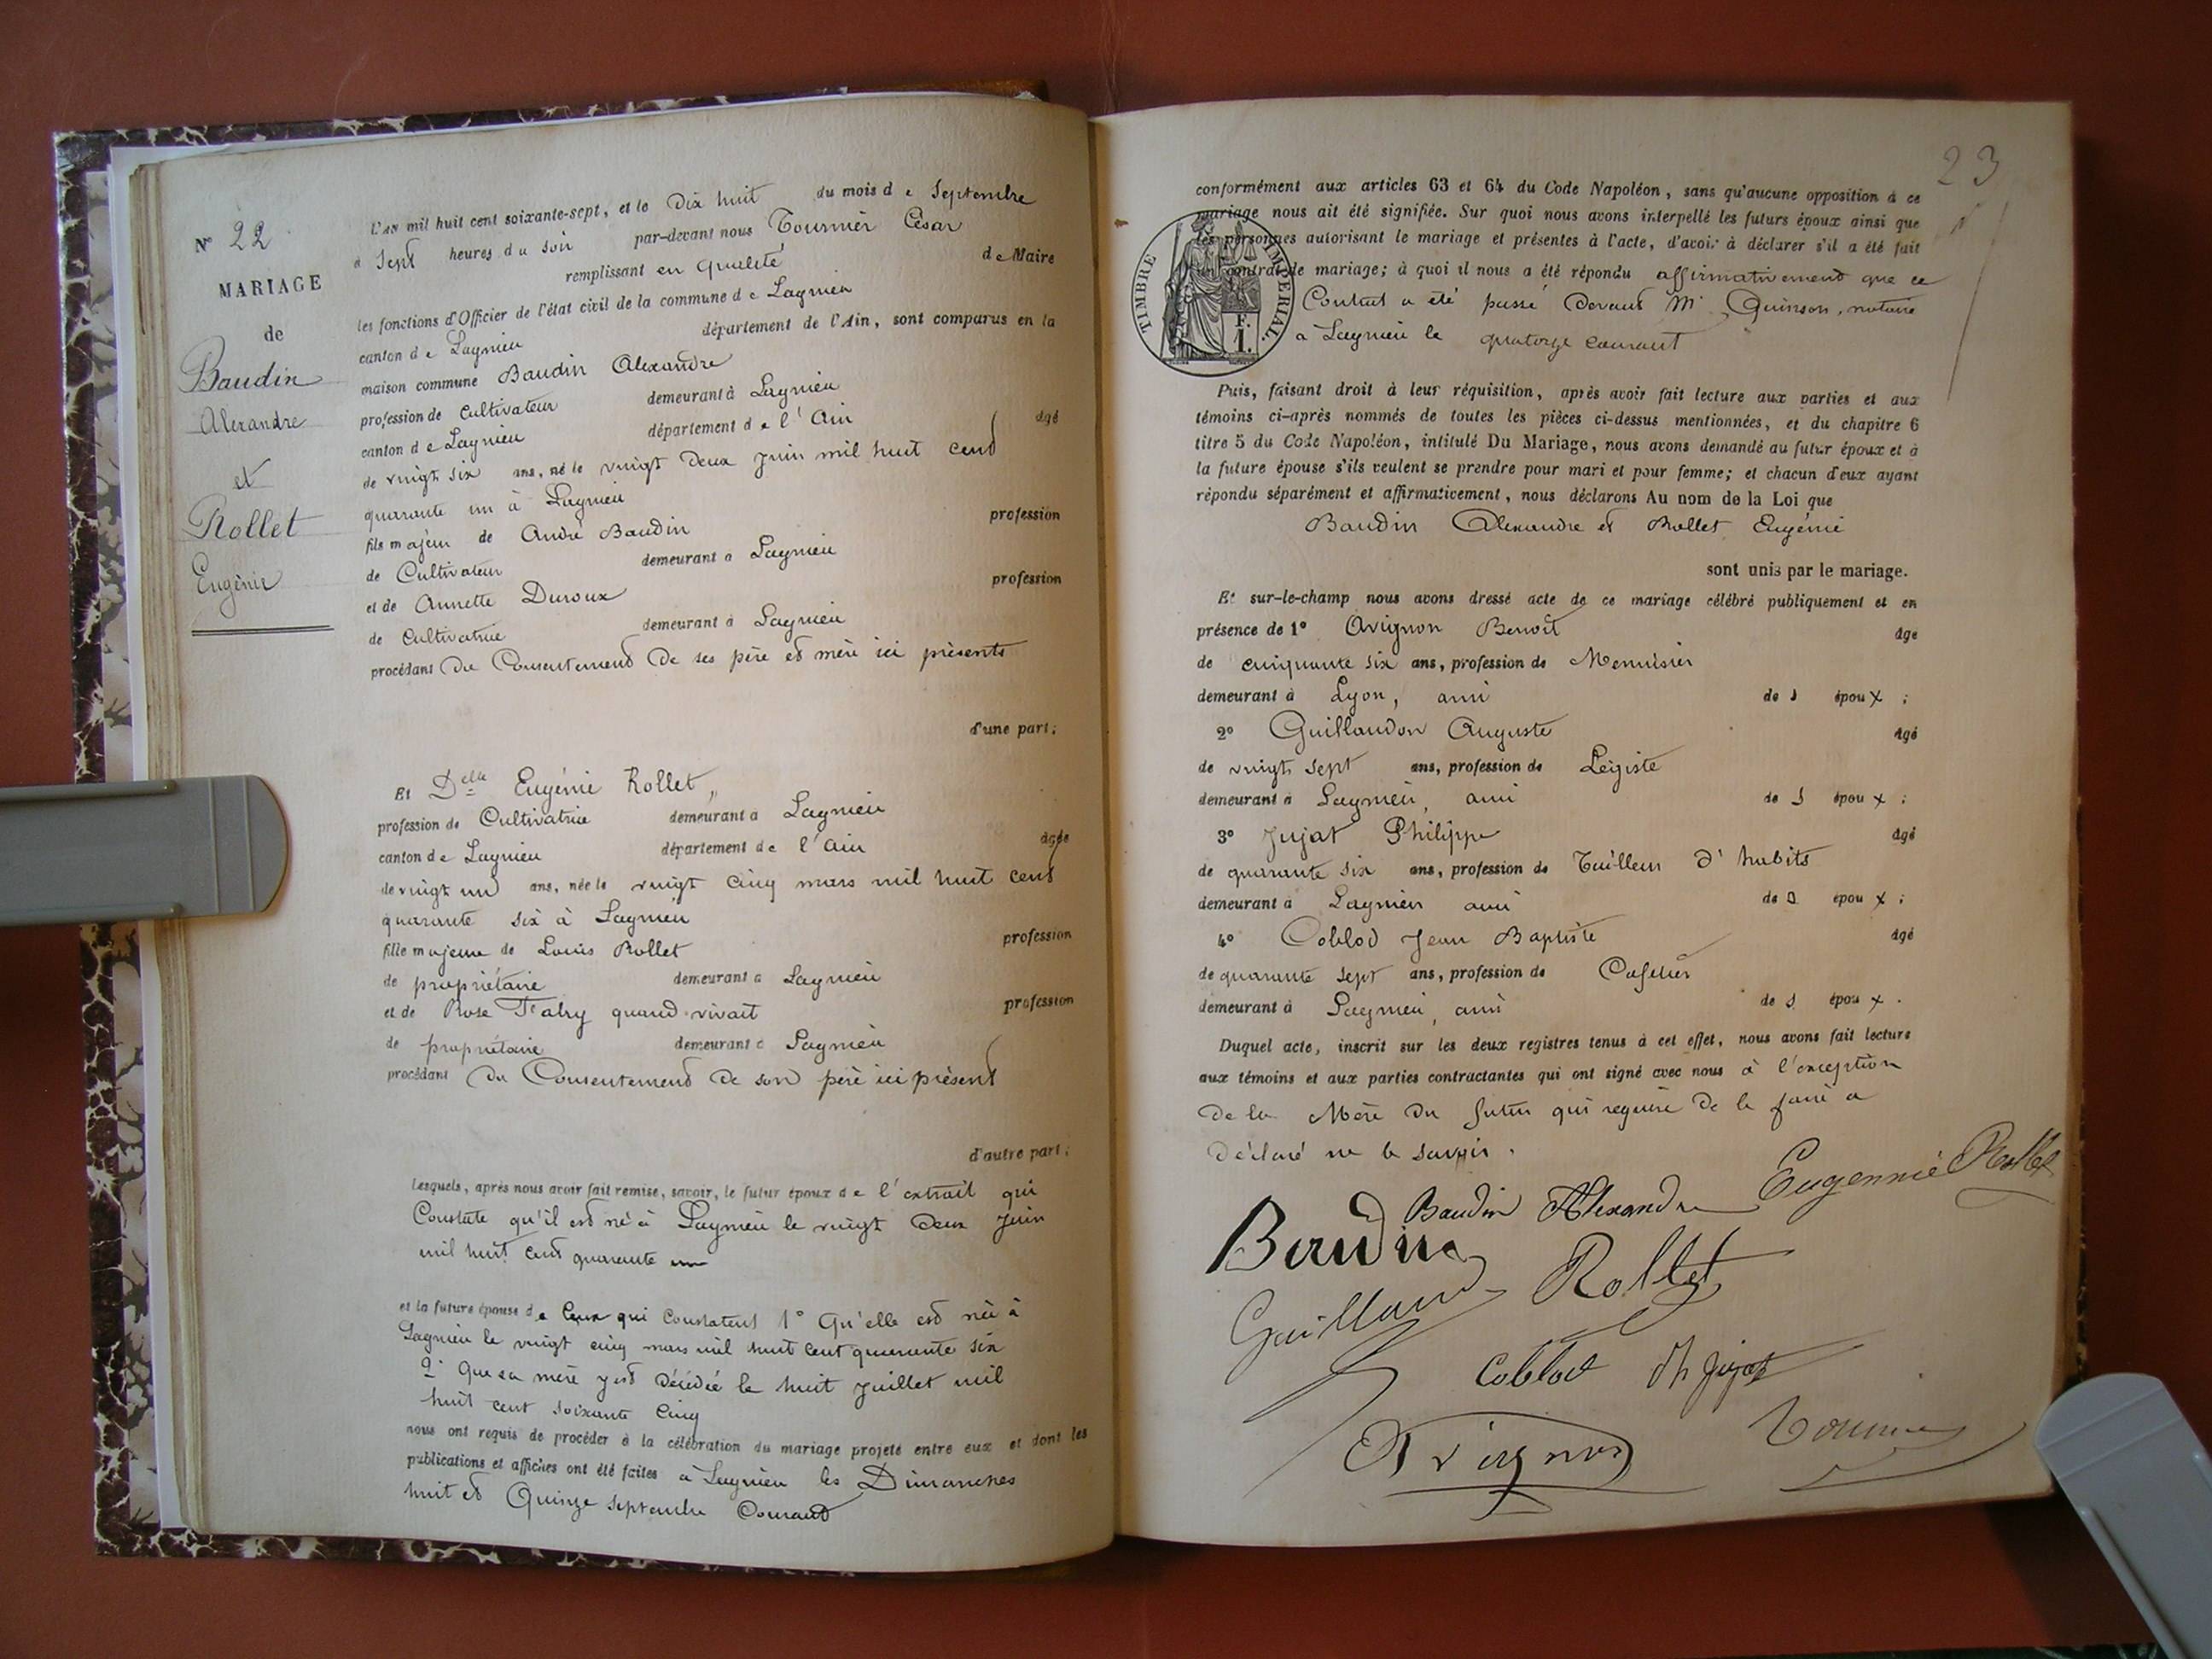 N° 22
MARIAGE
de
Baudin
Alexandre
et
Rollet
Eugénie
L'an mil huit cent soixante-sept, et le Dix huit du mois de Septembre
à Sept heures du soir par-devant nous Tournier César
remplissant en qualité de Maire
les fonctions d'Officier de l'état civil de la commune de Lagnieu
canton de Lagnieu département de l'Ain, sont comparus en la
maison commune Baudin Alexandre
profession de Cultivateur demeurant à Lagnieu
canton de Lagnieu département de l'Ain âgé
de vingt six ans, né le vingt Deux Juin mil huit cent
quarante un à Lagnieu
fils majeur de André Baudin profession
de Cultivateur demeurant à Lagnieu
et de Annette Duroux profession
de Cultivatrice demeurant à Lagnieu
procédant Du Consentement De ses père et mère ici présents
d'une part;
Et Delle Eugénie Rollet,
profession de Cultivatrice demeurant à Lagnieu
canton de Lagnieu département de l'Ain âgée
de vingt un ans, née le vingt cinq mars mil huit cent
quarante six à Lagnieu
fille majeure de Louis Rollet profession
de propriétaire demeurant à Lagnieu
et de Rose quand vivait profession
de propriétaire demeurant à Lagnieu
procédant Du Consentement De son père ici présent
d'autre part;
Lesquels, après nous avoir fait remise, savoir, le futur époux de l'extrait qui
Constate qu'il est né à Lagnieu le vingt Deux Juin
mil huit cent quarante un
et la future épouse de Ceux qui Constatent 1° Qu'elle est née à
Lagnieu le vingt cinq mars mil huit cent quarante six
2° Que sa mère y est Décédée le huit Juillet mil
huit cent soixante Cinq
nous ont requis de procéder à la célébration du mariage projeté entre eux et dont les
publications et affiches ont été faites à Lagnieu les Dimanches
huit et Quinze Septembre Courant
23
conformément aux articles 63 et 64 du Code Napoléon, sans qu'aucune opposition à ce
mariage nous ait été signifiée. Sur quoi nous avons interpellé les futurs époux ainsi que
les personnes autorisant le mariage et présentes à l'acte, d'avoir à déclarer s'il a été fait
un contrat de mariage; à quoi il nous a été répondu affirmativement que ce
Contrat a été passé Devant Me Quinson, notaire
à Lagnieu le quatorze courant
TIMBRE IMPÉRIAL
F.
1.
Puis, faisant droit à leur réquisition, après avoir fait lecture aux parties et aux
témoins ci-après nommés de toutes les pièces ci-dessus mentionnées, et du chapitre 6
titre 5 du Code Napoléon, intitulé Du Mariage, nous avons demandé au futur époux et à
la future épouse s'ils veulent se prendre pour mari et pour femme; et chacun d'eux ayant
répondu séparément et affirmativement, nous déclarons Au nom de la Loi que
Baudin Alexandre et Rollet Eugénie
sont unis par le mariage.
Et sur-le-champ nous avons dressé acte de ce mariage célébré publiquement et en
présence de 1° Avignon Benoît âgé
de cinquante six ans, profession de Menuisier
demeurant à Lyon, ami des époux;
2° Guillaudon Auguste âgé
de vingt sept ans, profession de Légiste
demeurant à Lagnieu, ami des époux;
3° Jujat Philippe âgé
de quarante six ans, profession de Tailleur d'habits
demeurant à Lagnieu ami des époux;
4° Coblod Jean Baptiste âgé
de quarante sept ans, profession de Cafetier
demeurant à Lagnieu, ami des époux.
Duquel acte, inscrit sur les deux registres tenus à cet effet, nous avons fait lecture
aux témoins et aux parties contractantes qui ont signé avec nous à l'exception
De la Mère Du futur qui requise De le faire a
Déclaré ne le savoir.
Baudin Alexandre Eugennie Rollet
Baudin
Rollet
Coblod Ph Jujat
Avignon